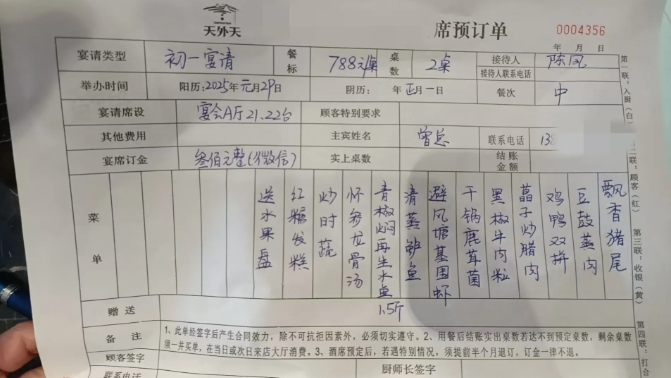 天外天
席预订单
0004356
年 月 日
宴请类型 初一宴请 餐标 788元/桌 桌数 2桌 接待人 陈凤
接待人联系电话
举办时间 阳历：2025年元月29日 阴历： 年正月一日 餐次 中
宴请席设 宴会A厅21.22台 顾客特别要求
其他费用 主宾姓名 曾总 联系电话 13
宴席订金 叁佰元整(微信) 实上桌数 结账金额
菜单
飘香猪尾
豆豉蒸肉
鸡鸭双拼
藠子炒腊肉
黑椒牛肉粒
干锅鹿茸菌
避风塘基围虾
清蒸鲈鱼
青椒焖再生水鱼1.5斤
怀山龙骨汤
炒时蔬
红糖发糕
送水果盘
赠送
备注 1、此单经签字后产生合同效力，除不可抗拒因素外，必须切实遵守。2、用餐后结账实出桌数若达不到预定桌数，剩余桌数
须一并买单，在当日或次日来店大厅消费。3、酒席预定后，若遇特别情况，须提前半个月退订，订金一律不退。
顾客签字 厨师长签字
联系电话
第一联：入厨（白） 第二联：顾客（红） 第三联：收银（黄） 第四联：打合